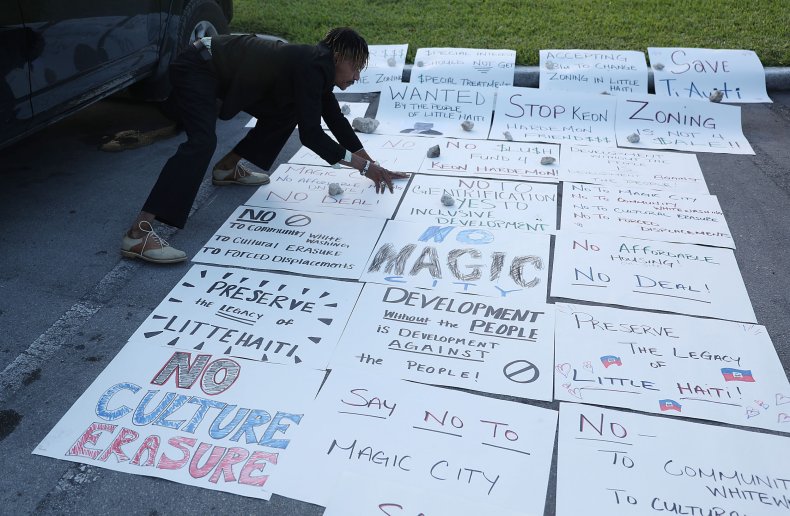 $pecial Interest
$hould Not Get
$pecial Treatment
Accepting
to Change
Zoning in Little
Haiti
Save
Ti Ayiti
Wanted
By the People
of Little Haiti
Stop Keon
Hardemon
Zoning
is Not 4
$ale!!!
Magic
No Affordable
No Deal!
No $lu$h
Fund 4
Keon Hardemon!
No to
Gentrification
Yes to
Inclusive
Development
Development
Without the
People is
Against
No to Magic City
No to Community Whitewashing
No to Cultural Erasure
No to Forced Displacements
No
to Community White
Washing
to Cultural Erasure
to Forced Displacements
No
Magic
City
No Affordable
Housing!
No Deal!
Preserve
the Legacy of
Little Haiti
Development
Without the People
is Development
Against
the People!
Preserve
the Legacy of
Little Haiti!
No
Culture
Erasure
Say No To
Magic City
No
To Communit
Whitew
To Cultural